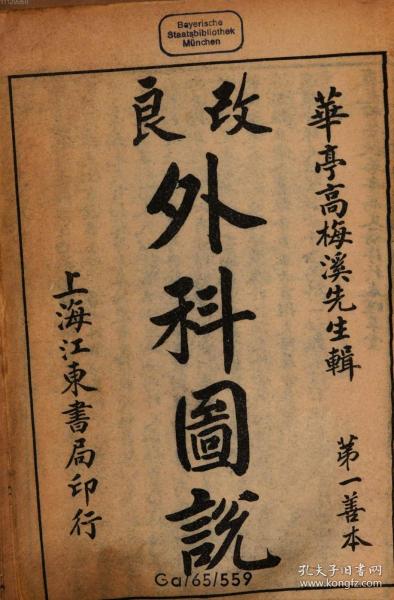 Bayerische
Staatsbibliothek
München
改良
華亭高梅溪先生輯
第一善本
外科圖說
上海江東書局印行
Ga/65/559
孔夫子旧书网
www.kongfz.com